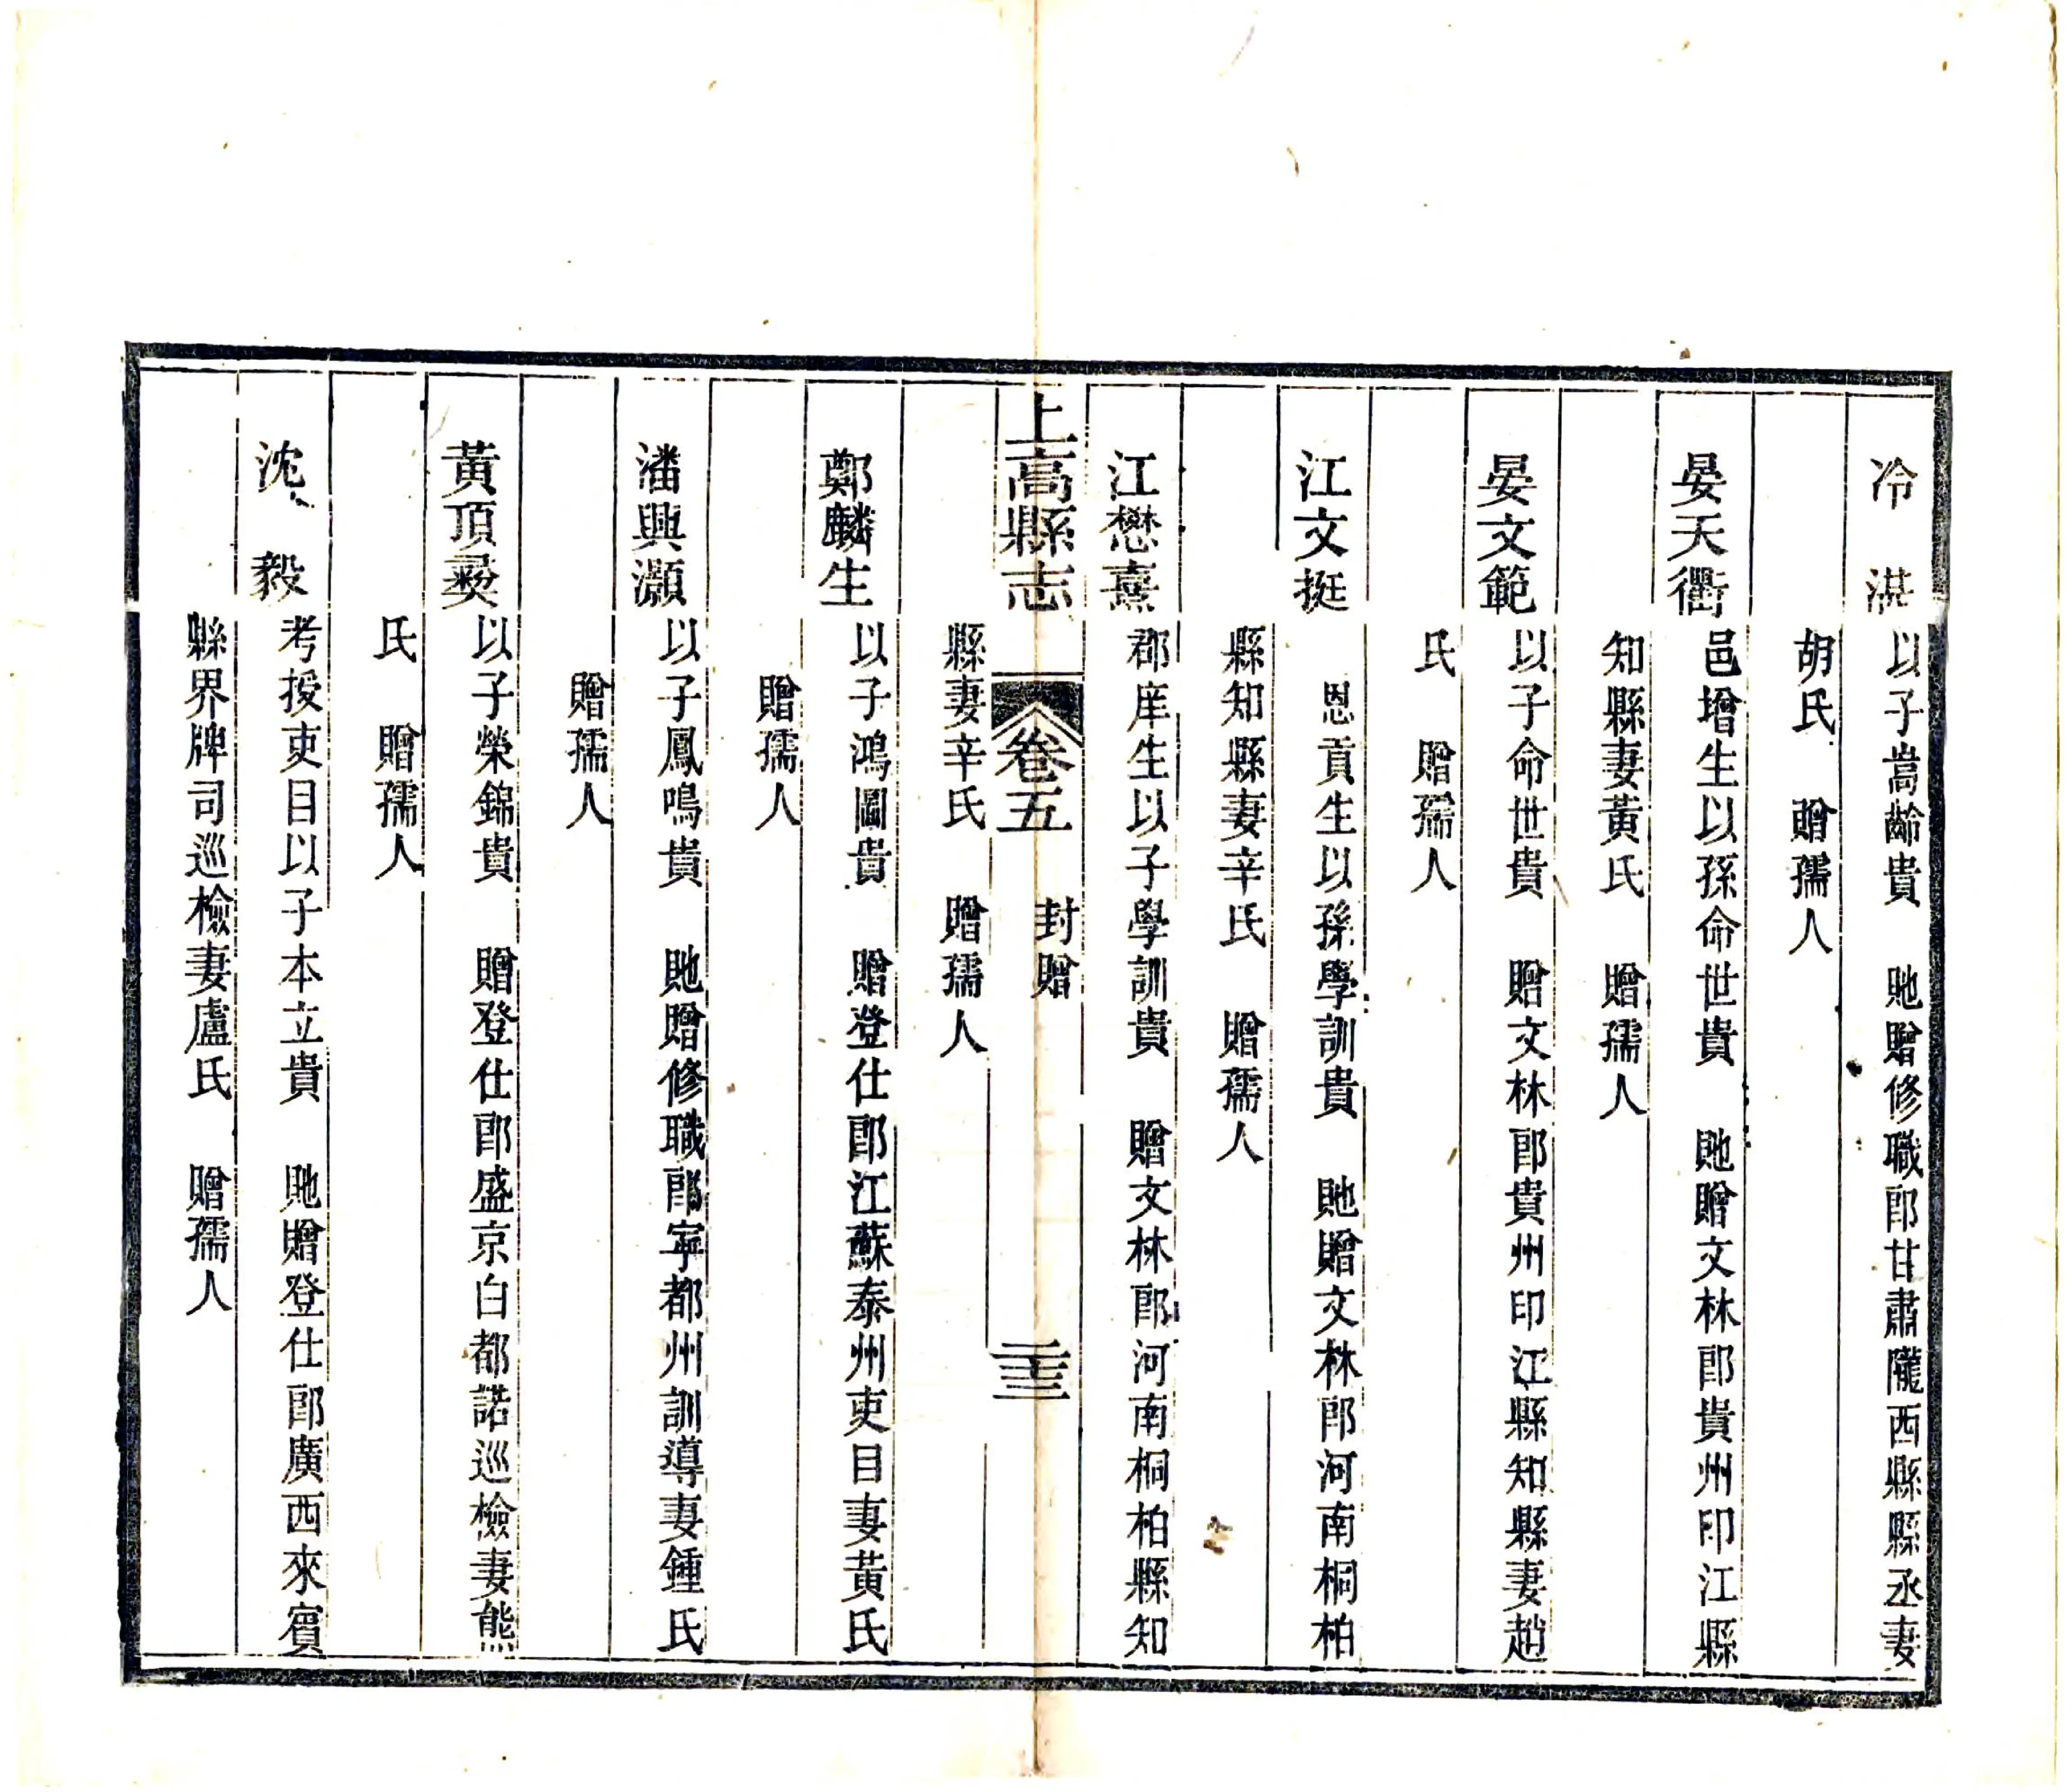 冷　湛以子嵩齡貴　貤贈修職郎甘肅隴西縣縣丞妻
胡氏　贈孺人
晏天衢邑增生以孫命世貴　貤贈文林郎貴州印江縣
知縣妻黃氏　贈孺人
晏文範以子命世貴　贈文林郎貴州印江縣知縣妻趙
氏　贈孺人
江文挺　恩貢生以孫學訓貴　貤贈文林郎河南桐柏
縣知縣妻辛氏　贈孺人
江懋熹郡庠生以子學訓貴　贈文林郎河南桐柏縣知
上高縣志　卷五　封贈　二十三
縣妻辛氏　贈孺人
鄭麟生以子鴻圖貴　贈登仕郎江蘇泰州吏目妻黃氏
贈孺人
潘興灝以子鳳鳴貴　貤贈修職郎寧都州訓導妻鍾氏
贈孺人
黃頂彝以子榮錦貴　贈登仕郎盛京白都諾巡檢妻熊
氏　贈孺人
沈　毅考授吏目以子本立貴　貤贈登仕郎廣西來賓
縣界牌司巡檢妻盧氏　贈孺人